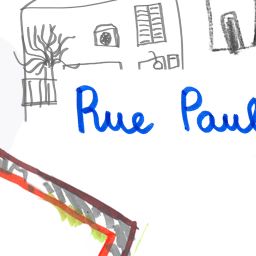 Rue Paul